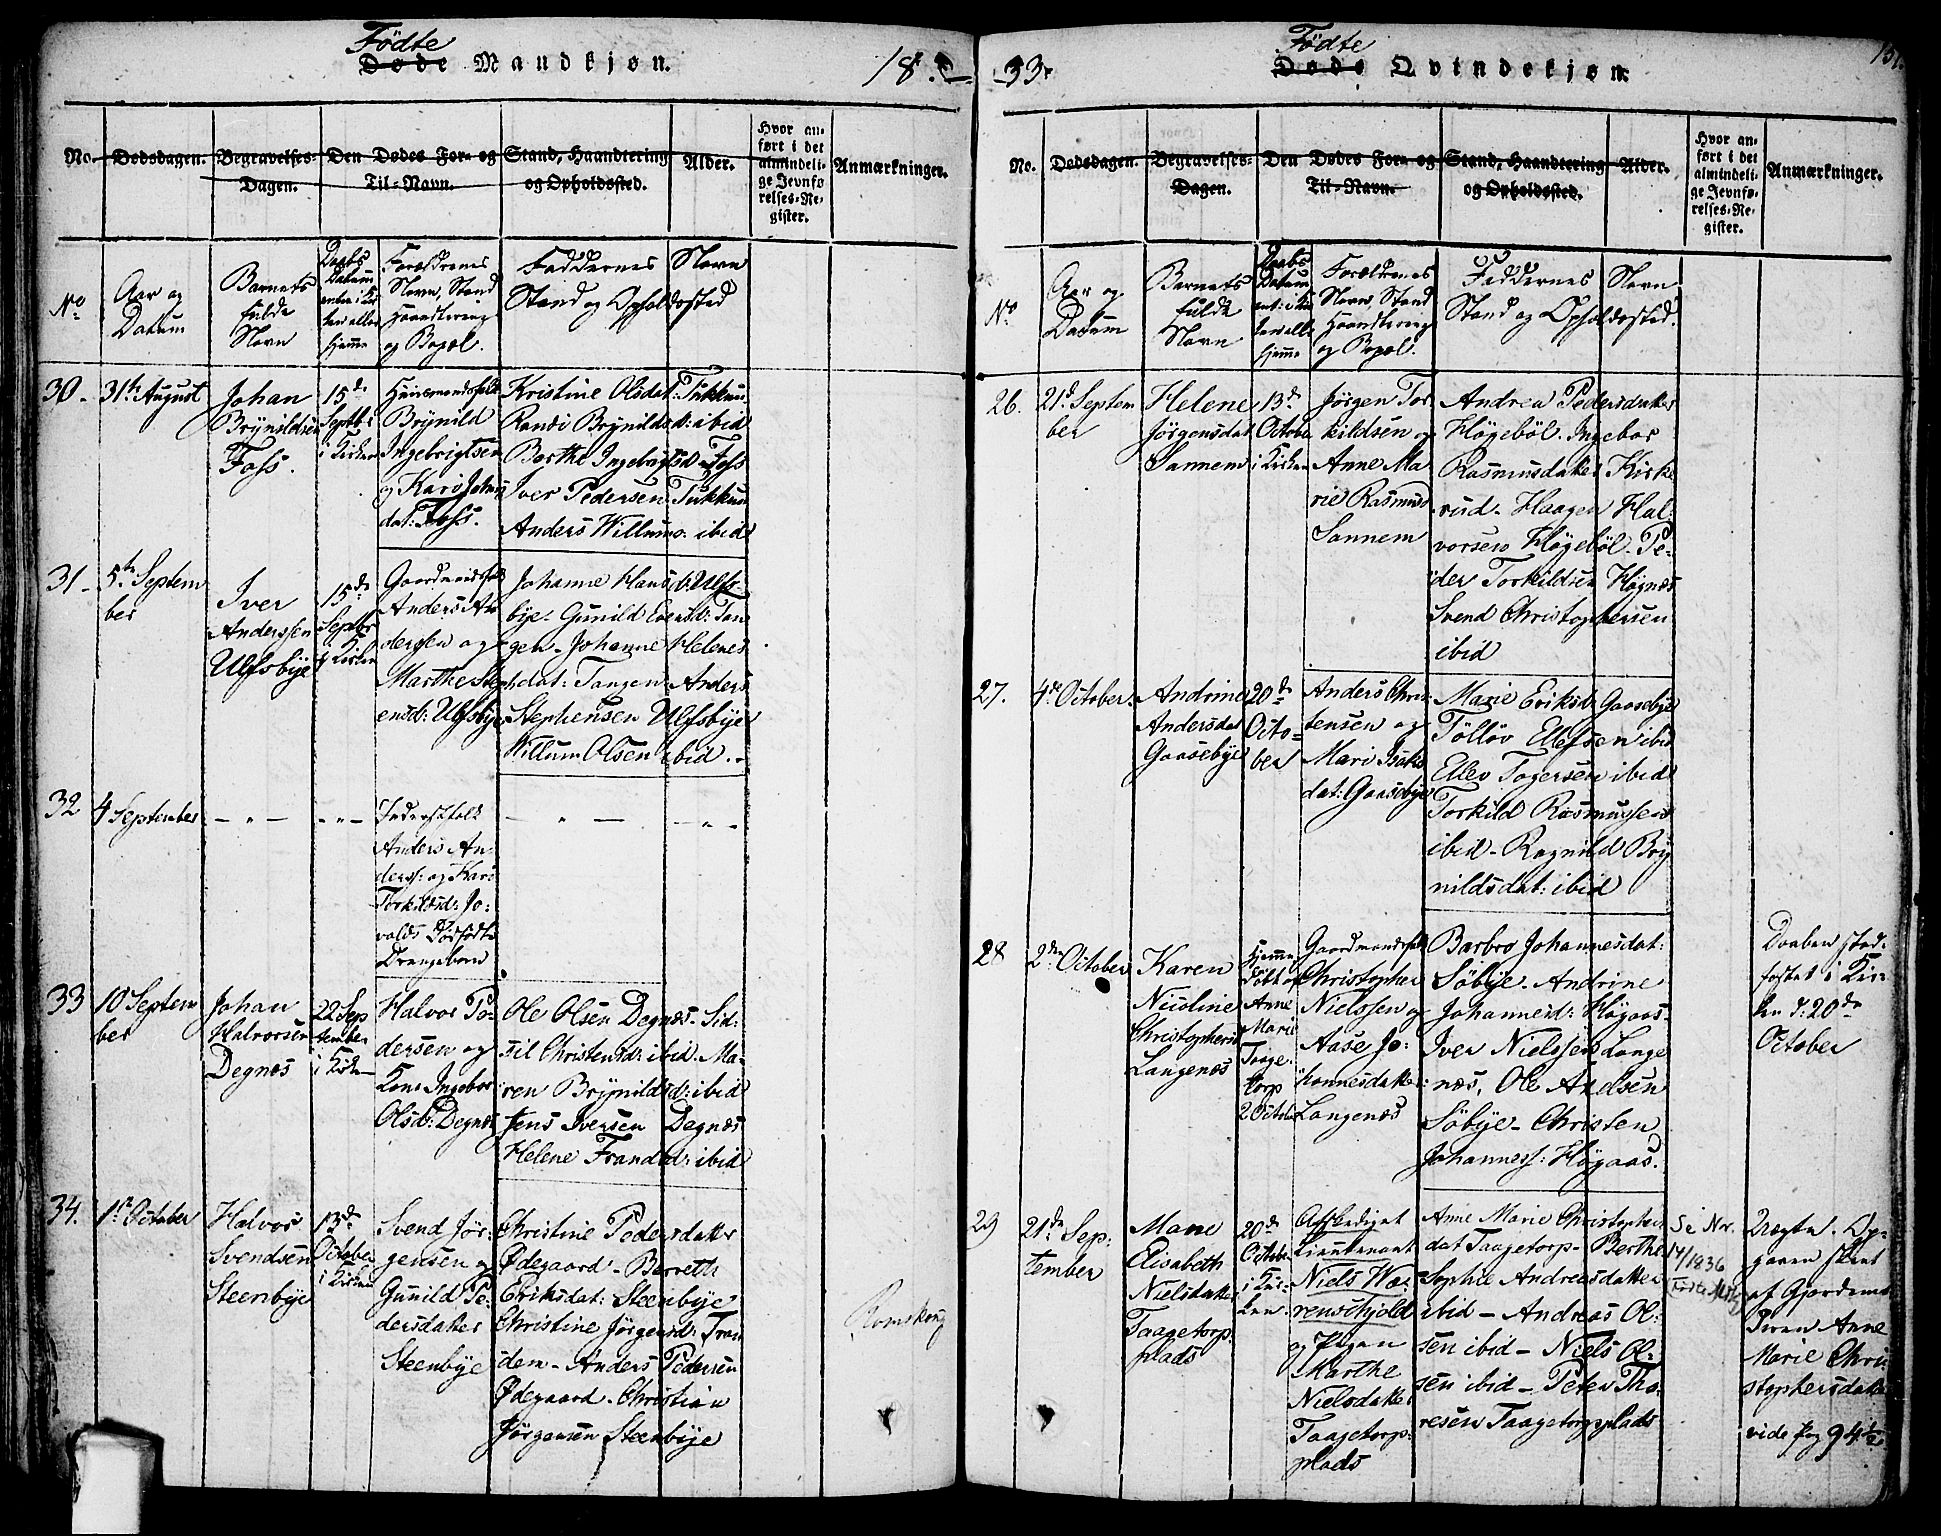 Födte
Döde Mandkjön.
18
No. Dødsdagen. Begravelses-Dagen. Den Dødes For- og Til-Navn. Stand, Haandtering og Opholdssted. Alder. Hvor anført i det almindelige Jevnførelses-Register. Anmærkninger.
No Aar og Datum Barnets fulde Navn Daabs Datum enten i Kirken eller hjemme Forældrenes Navn, Stand Haandtering og Bopæl. Faddernes Navn Stand og Opholdssted
30 31te August
Johan
Brynildsen
Foss.
15de
Septbr
i Kirken
Huusmandsfolk
Brynild
Ingebrigtsen
og Kari Johns
dat: Foss.
Kristine Olsdat: Tukkuu
Randi Brynildsd: ibid
Berthe Ingebrigtsd: Foss
Iver Pedersen Tukkuu
Anders Willums: ibid
31 5te Septem
ber
Iver
Anderssen
Ulfsbye
15de
Septbr
i Kirken
Gaardmandsfolk
Anders An
dersen og
Marthe Steph
ensd: Ulfsbye
Johanne Hansd: Ulfs
bye. Gunild Evensd: Tan
gen. Johanne Helenes
dat: Tangen. Anders
Stephensen Ulfsbye
Willum Olsen ibid.
32 4 September
Anders An
derss: og Kari
Torkildsd: Jo
valds Dödfödte
Drengebarn
33 10 Septem
ber
Johan
Halvorsen
Degnæs
22 Sep
tember
i Kirken
Halvor Pe
dersen og
Kone Ingebor
Olsd: Degnæs
Ole Olsen Degnæs. Sid
sil Christensd: ibid: Ma
ren Brynildsd: ibid
Jens Iversen Degnæs
Helene Frandsd: ibid
34. 1te October
Halvor
Svendsen
Steenbye
13de
October
i Kirken
Svend Jör
gensen og
Gunild Pe
dersdatter
Steenbye
Christine Pedersdatter
Ödegaard. Berreth
Eriksdat: Steenbye
Christine Jörgensd: Tran
dem. Anders Pedersen
Ödegaard. Christian
Jörgensen Steenbye
Romskoug
33.
Födte
Döde Qvindekjön.
131.
No. Dødsdagen. Begravelses-Dagen. Den Dødes For- og Til-Navn. Stand, Haandtering og Opholdssted. Alder. Hvor anført i det almindelige Jevnførelses-Register. Anmærkninger.
No Aar og Datum Barnets fulde Navn Daabs Datum ent: i Kirken elle hjemme Forældrenes Navn, Stand Haandtering og Bopæl. Faddernes Navn Stand og Opholdssted.
26. 21d Septem
ber
Helene
Jörgensdat
Sannem
13de
Octobe
i Kirken
Jörgen Tor
kildsen og
Anne Ma
rie Rasmusd
Sannem
Andrea Pedersdatter
Högeböl. Ingebor
Rasmusdatter Kirke
rud. Haagen Hal
vorsen Högeböl. Pe
der Torkildsen Högnæs
Svend Christophersen
ibid
27. 4de October.
Andrine
Andersdat
Gaasebye
20de
Octo
ber
Anders Chris
tensen og
Mari Isaks
dat: Gaasebye
Marie Eriksd: Gaasebye
Töllöv Ellefsen ibid
Ellev Togersen ibid
Torkild Rasmussen
ibid. Ragnild Bry
nildsdat: ibid
28 2den October
Karen
Nicoline
Christophersd
Langenæs
Hjemme
döbt af
Anne
Marie
Taage
torp
2 Octob
Gaardmandsfolk
Christopher
Nielssen og
Aase Jo
hannesdatter
Langenæs
Barbro Johannesdat:
Söbye. Andrine
Johannesd: Högaas.
Iver Nielssen Lange
næs. Ole Andsen
Söbye. Christen
Johanness: Högaas.
Daaben stad
fæstet i Kir
ken d: 20de
October
29 21de Sep
tember
Mane
Elisabeth
Nielsdatter
Taagetorp
plads
20de
Octobe
i Kir
ken
Afskediget
Lieutenant
Niels Wæ
renschjold
og Pigen
Marthe
Nielsdatter
Taagetorp
plads
Anne Marie Christopher
dat Taagetorp. Berthe
Sophie Andreasdatter
ibid. Andreas Ol
sen ibid. Niels Ol
sen ibid. Peter Tho
resen Taagetorpplads
Se Nr.
14/1836
Uægte. Op
gaven skeet
af Gjordemo
deren Anne
Marie Chri
stophersdatter
vide Pag 94½